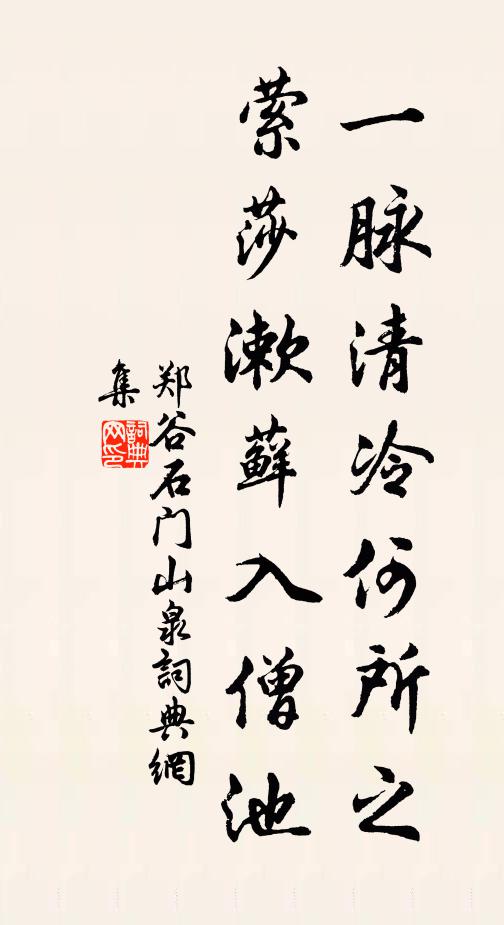 一脉清冷何所之
萦莎漱藓入僧池
郑谷石门山泉詞典網
集
詞典
网印